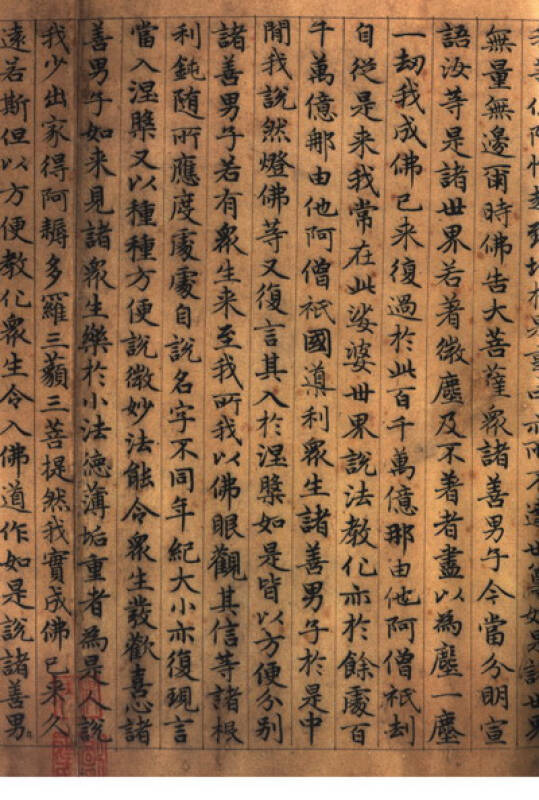 亦所不達世尊如是諸世界
無量無邊爾時佛告大菩薩眾諸善男子今當分明宣
語汝等是諸世界若著微塵及不著者盡以為塵一塵
一劫我成佛已来復過於此百千萬億那由他阿僧祇劫
自從是来我常在此娑婆世界說法教化亦於餘處百
千萬億那由他阿僧祇國導利眾生諸善男子於是中
間我說然燈佛等又復言其入於涅槃如是皆以方便分別
諸善男子若有眾生来至我所我以佛眼觀其信等諸根
利鈍随所應度處處自說名字不同年紀大小亦復現言
當入涅槃又以種種方便說微妙法能令眾生發歡喜心諸
善男子如来見諸眾生樂於小法德薄垢重者為是人說
我少出家得阿耨多羅三藐三菩提然我實成佛已来久
遠若斯但以方便教化眾生令入佛道作如是說諸善男